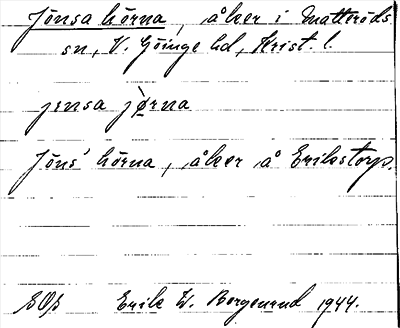 Jönsa hörna, åker i Matteröds
sn, V. Göinge hd, Krist. l.
jensa jø̀rna
Jöns' hörna, åker å Erikstorp.
Erik W. Borgenund 1944.